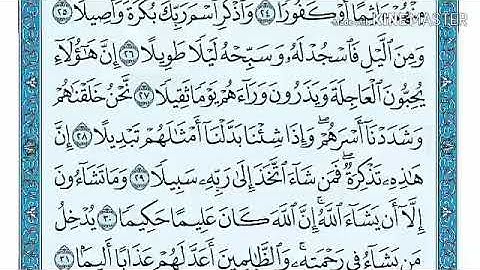 مِنْهُمْ ءَاثِمًا أَوْ كَفُورًا ٢٤ وَٱذْكُرِ ٱسْمَ رَبِّكَ بُكْرَةً وَأَصِيلًا ٢٥
وَمِنَ ٱلَّيْلِ فَٱسْجُدْ لَهُۥ وَسَبِّحْهُ لَيْلًا طَوِيلًا ٢٦ إِنَّ هَٰٓؤُلَآءِ
يُحِبُّونَ ٱلْعَاجِلَةَ وَيَذَرُونَ وَرَآءَهُمْ يَوْمًا ثَقِيلًا ٢٧ نَّحْنُ خَلَقْنَٰهُمْ
وَشَدَدْنَآ أَسْرَهُمْ ۖ وَإِذَا شِئْنَا بَدَّلْنَآ أَمْثَٰلَهُمْ تَبْدِيلًا ٢٨ إِنَّ
هَٰذِهِۦ تَذْكِرَةٌ ۖ فَمَن شَآءَ ٱتَّخَذَ إِلَىٰ رَبِّهِۦ سَبِيلًا ٢٩ وَمَا تَشَآءُونَ
إِلَّآ أَن يَشَآءَ ٱللَّهُ ۚ إِنَّ ٱللَّهَ كَانَ عَلِيمًا حَكِيمًا ٣٠ يُدْخِلُ
مَن يَشَآءُ فِى رَحْمَتِهِۦ ۚ وَٱلظَّٰلِمِينَ أَعَدَّ لَهُمْ عَذَابًا أَلِيمًۢا ٣١
KINEMASTER